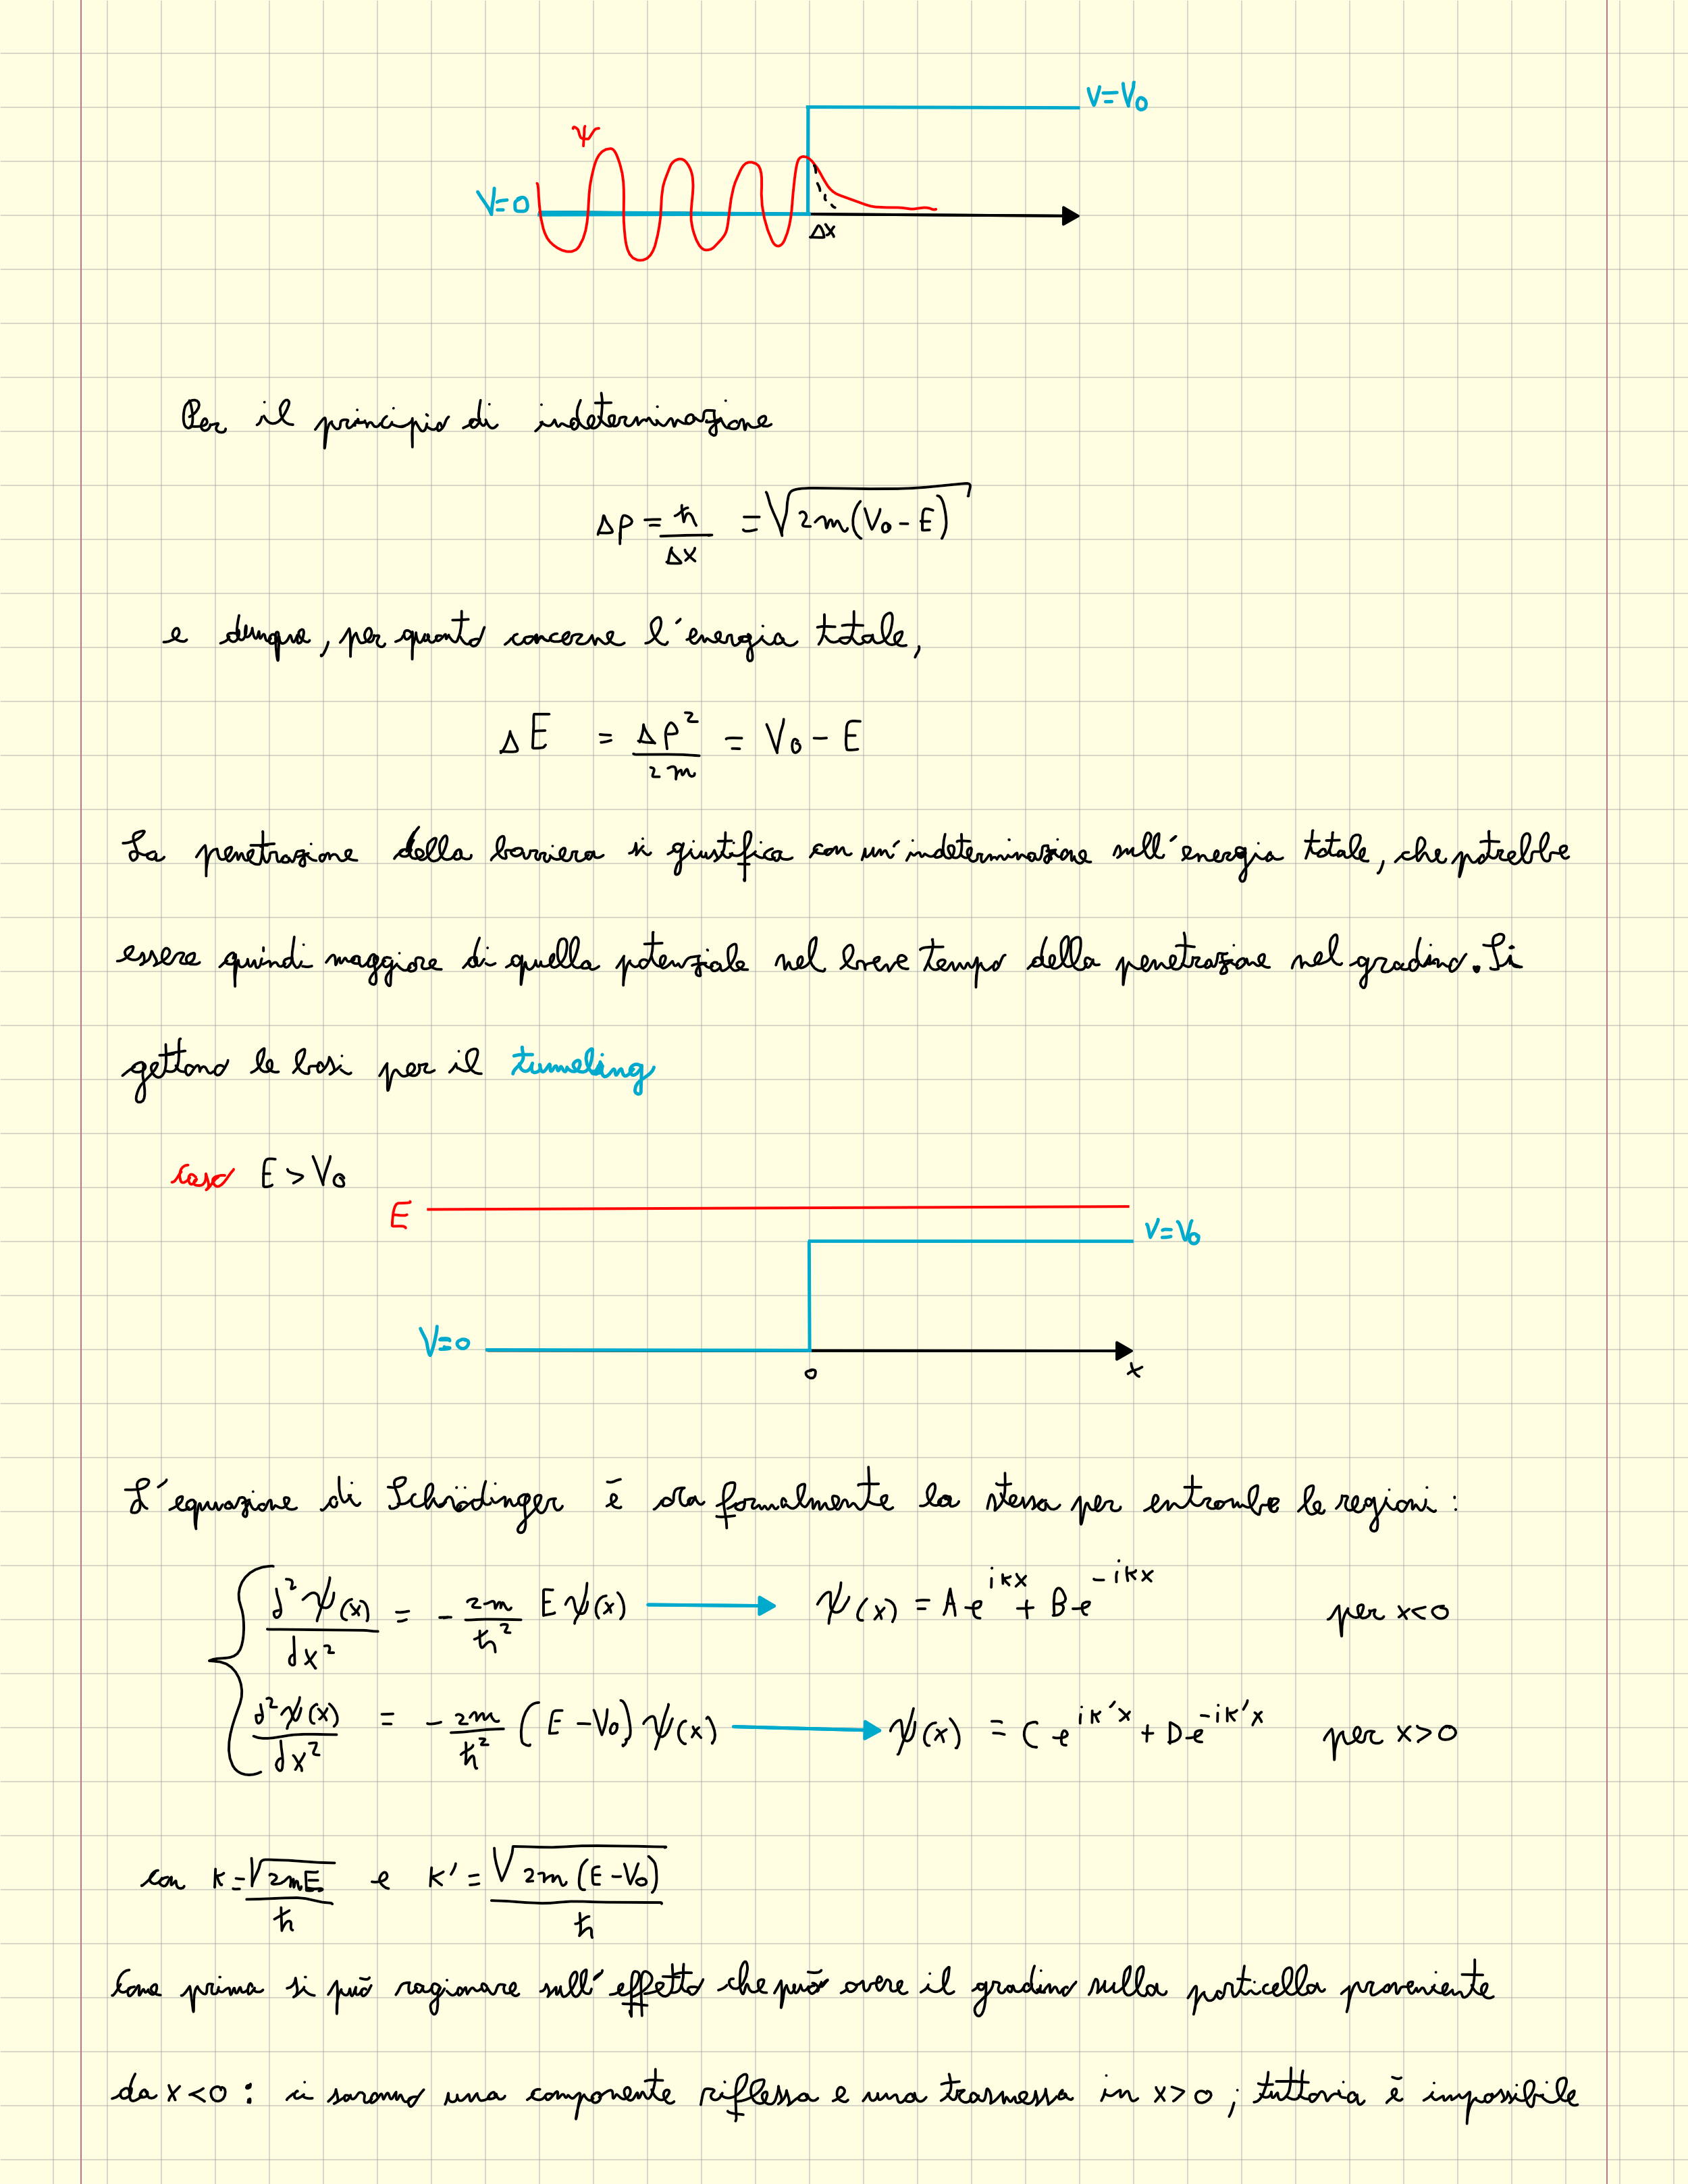 V=V₀
ψ
V=0
Δx
Per il principio di indeterminazione
Δp = ħ/Δx = √(2m(V₀-E))
e dunque, per quanto concerne l'energia totale,
ΔE = Δp²/2m = V₀ - E
La penetrazione della barriera si giustifica con un'indeterminazione sull'energia totale, che potrebbe
essere quindi maggiore di quella potenziale nel breve tempo della penetrazione nel gradino. Si
gettano le basi per il tunneling
caso E > V₀
E
V=V₀
V=0
0 x
L'equazione di Schrödinger è ora formalmente la stessa per entrambe le regioni :
d²ψ(x)/dx² = - 2m/ħ² E ψ(x) → ψ(x) = A e^{ikx} + B e^{-ikx} per x<0
d²ψ(x)/dx² = - 2m/ħ² (E - V₀) ψ(x) → ψ(x) = C e^{ik'x} + D e^{-ik'x} per x>0
con k = √(2mE)/ħ e k' = √(2m(E-V₀))/ħ
Come prima si può ragionare sull'effetto che può avere il gradino sulla particella proveniente
da x<0 : ci saranno una componente riflessa e una trasmessa in x>0 ; tuttavia è impossibile